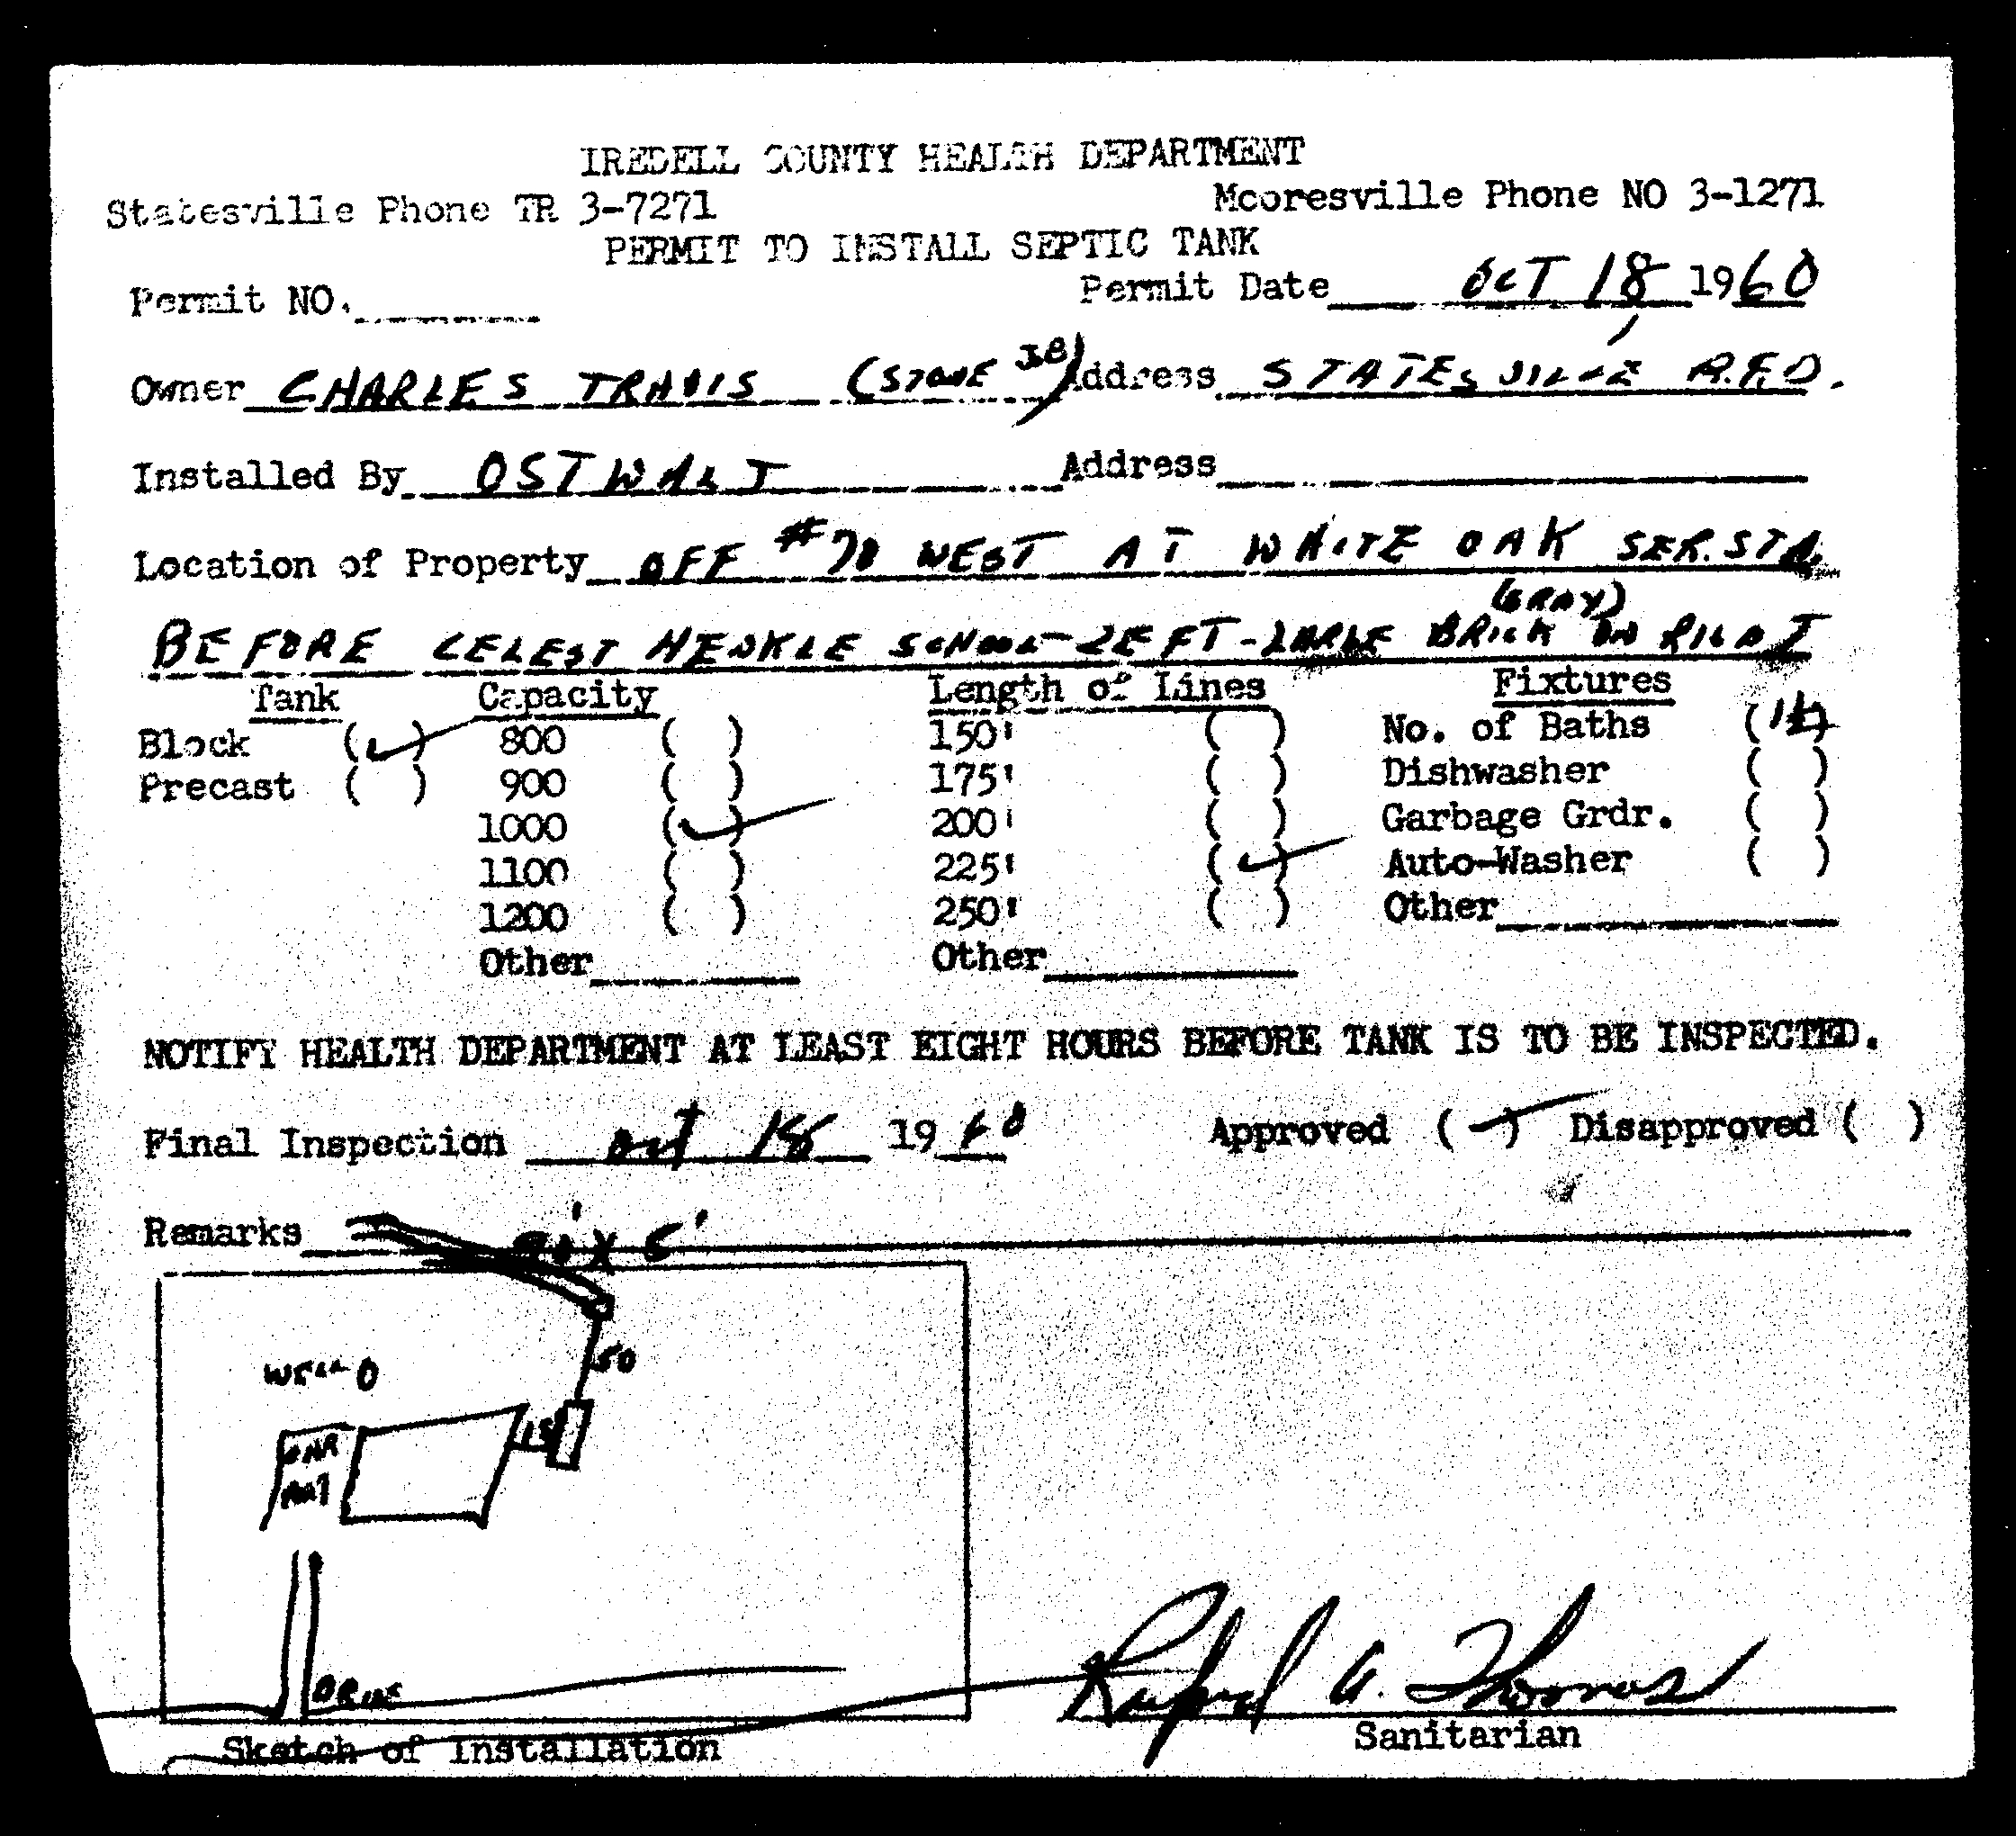 IREDELL COUNTY HEALTH DEPARTMENT
Statesville Phone TR 3-7271 Mooresville Phone NO 3-1271
PERMIT TO INSTALL SEPTIC TANK
Permit NO. Permit Date OCT 18, 1960
Owner CHARLES TRAVIS (STONE JB) Address STATESVILLE R.F.D.
Installed By OSTWALT Address
Location of Property OFF #70 WEST AT WHITE OAK SER. STA.
(GRAY)
BEFORE CELEST HENKLE SCHOOL - LEFT - LARGE BRICK ON RIGHT
Tank Capacity Length of Lines Fixtures
Block (✓) 800 ( ) 150' ( ) No. of Baths
Precast ( ) 900 ( ) 175' ( ) Dishwasher ( )
1000 (✓) 200' ( ) Garbage Grdr. ( )
1100 ( ) 225' (✓) Auto-Washer ( )
1200 ( ) 250' ( ) Other
Other Other
NOTIFY HEALTH DEPARTMENT AT LEAST EIGHT HOURS BEFORE TANK IS TO BE INSPECTED.
Final Inspection Oct 18 1960 Approved (✓) Disapproved ( )
Remarks 90' X 5'
50
WELL O
15
CAR
PORT
DRIVE
Ruford G. Thomas
Sketch of Installation Sanitarian